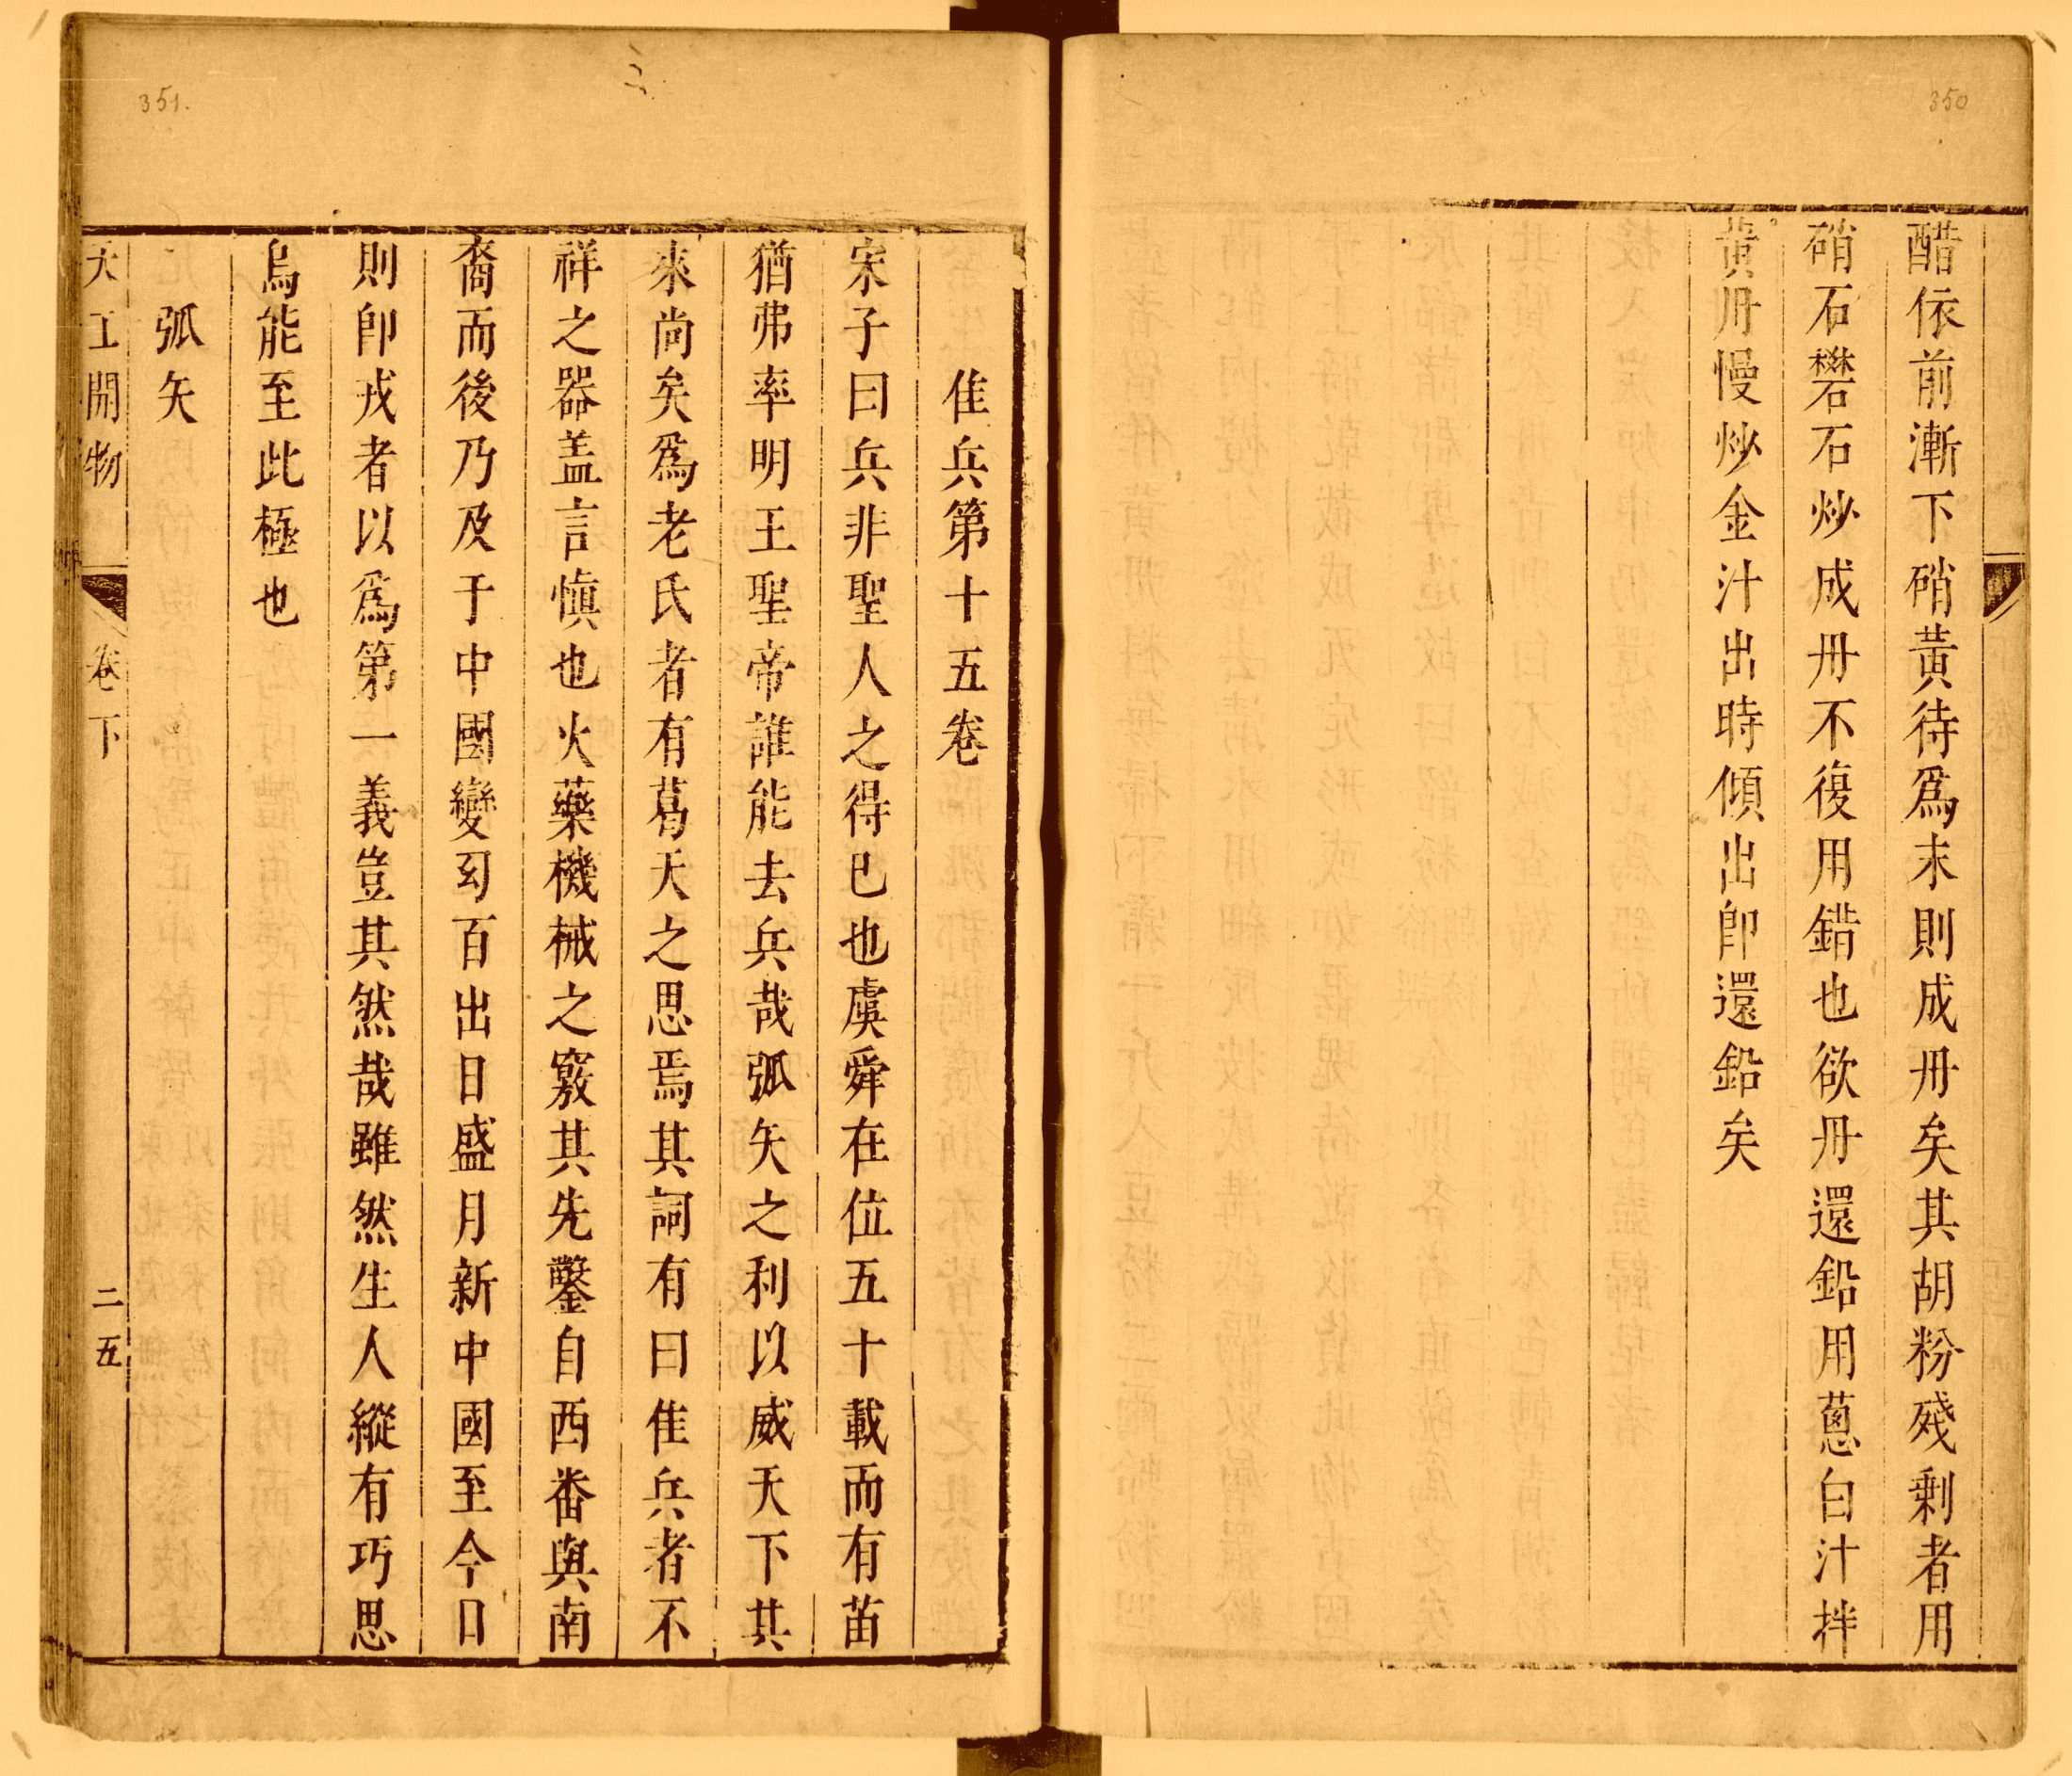 350
醋依前漸下硝黃待爲末則成丹矣其胡粉殘剩者用
硝石礬石炒成丹不復用錯也欲丹還鉛用蔥白汁拌
黃丹慢炒金汁出時傾出卽還鉛矣
351.
佳兵第十五卷
宋子曰兵非聖人之得已也虞舜在位五十載而有苗
猶弗率明王聖帝誰能去兵哉弧矢之利以威天下其
來尚矣爲老氏者有葛天之思焉其詞有曰佳兵者不
祥之器盖言愼也火藥機械之竅其先鑿自西番與南
裔而後乃及于中國變幻百出日盛月新中國至今日
則卽戎者以爲第一義豈其然哉雖然生人縱有巧思
烏能至此極也
弧矢
天工開物 卷下 二五